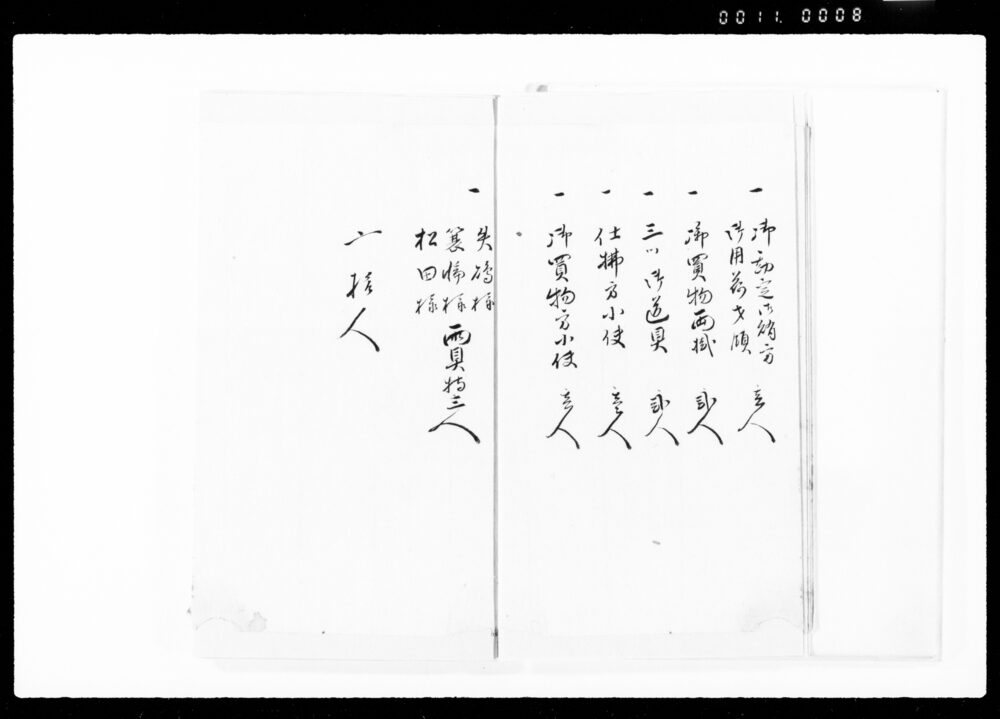 0011. 0008
一 御勘定御諸方
御用荷才領 壱人
一 御買物両掛 弐人
一 三ツ御道具 弐人
一 仕拂方小使 壱人
一 御買物方小使 壱人
一 矢嶋様
様
松田様
両具持三人
〆 拾人